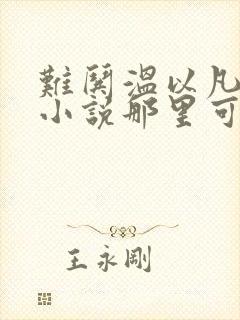 難鬨溫以凡
小説那里可
王永剛